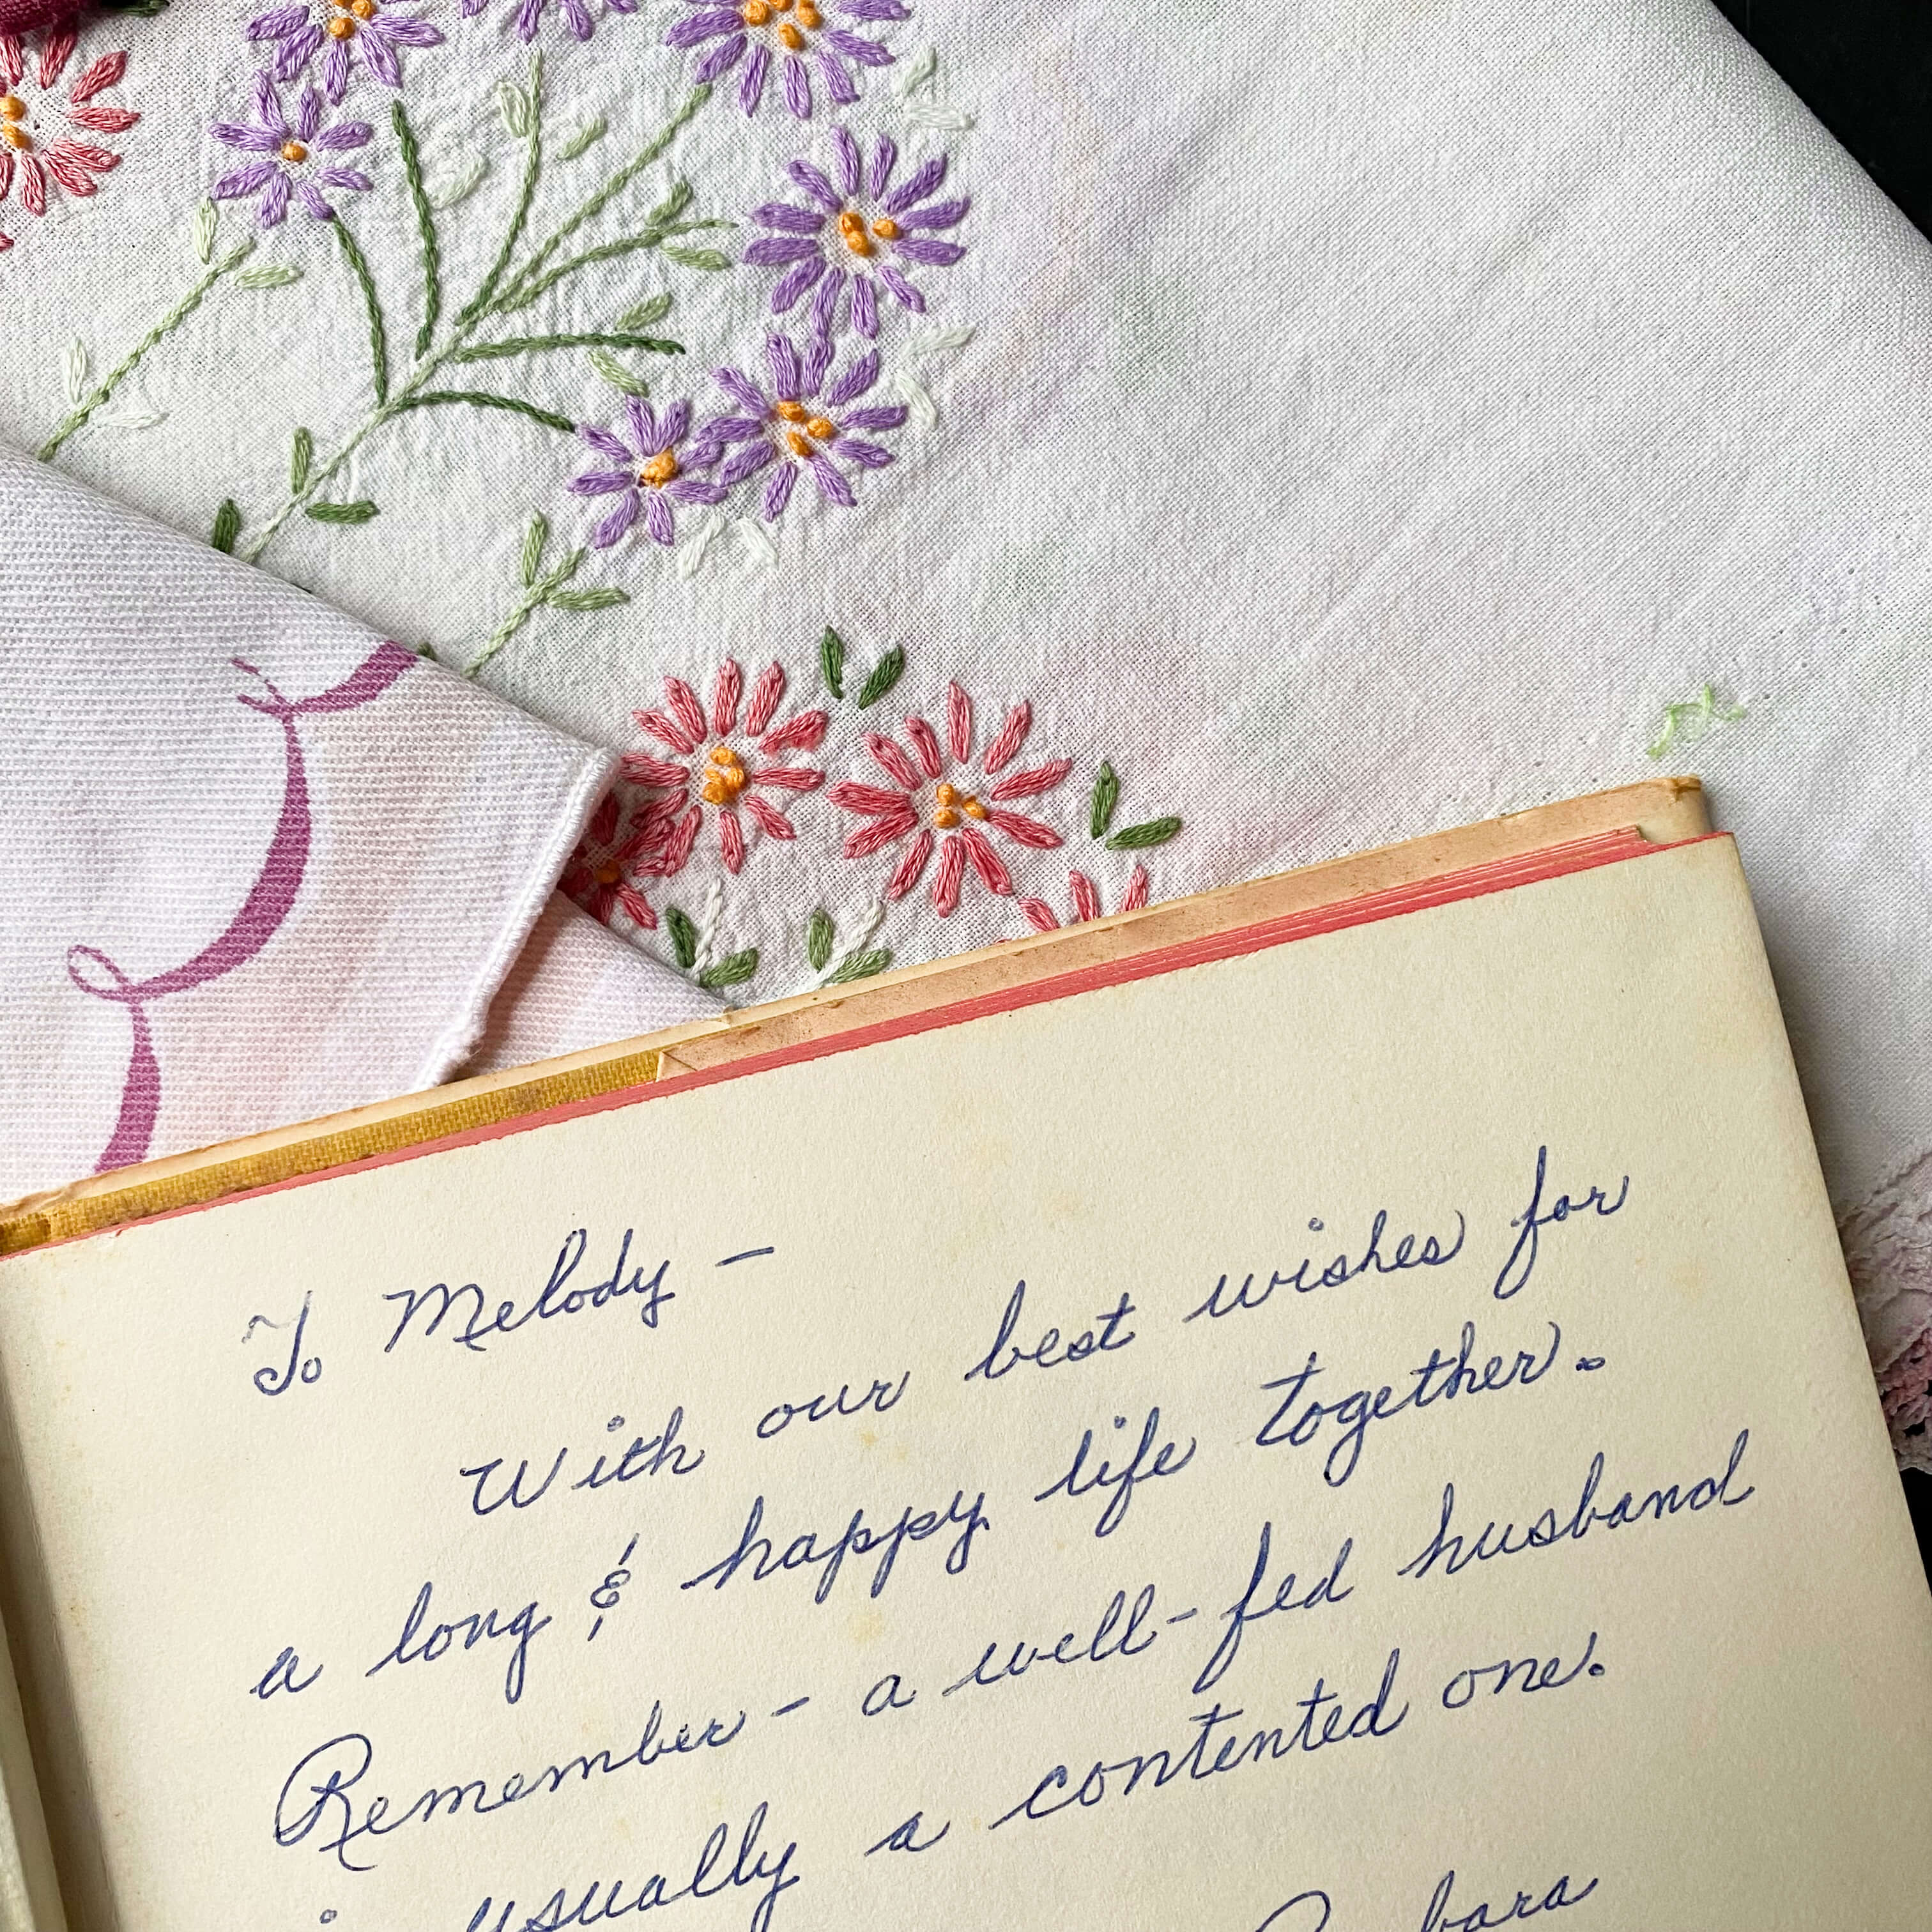 To Melody –
With our best wishes for
a long & happy life together.
Remember – a well-fed husband
is usually a contented one.